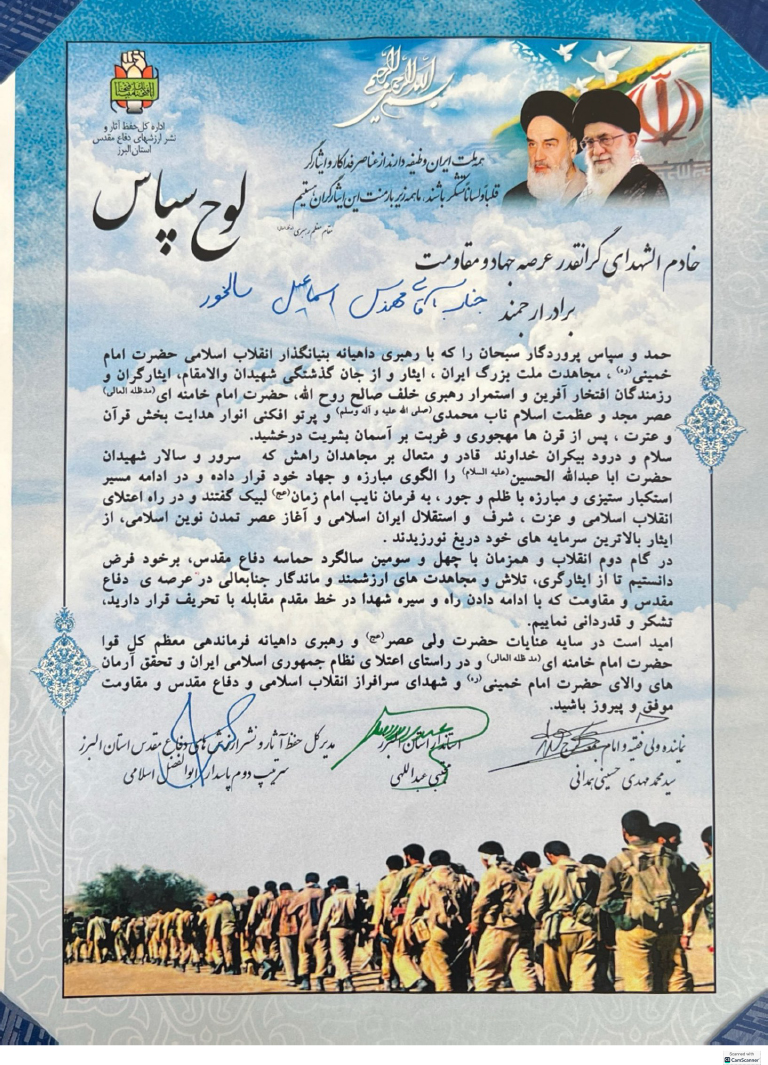 بسم الله الرحمن الرحیم
اداره کل حفظ آثار و
نشر ارزشهای دفاع مقدس
استان البرز
همه ملت ایران وظیفه دارند از عناصر فداکار و ایثارگر
قلباً و لساناً متشکر باشند، ما همه زیر بار منت این ایثارگران هستیم
مقام معظم رهبری
لوح سپاس
خادم الشهدای گرانقدر عرصه جهاد و مقاومت
برادر ارجمند جناب آقای مهندس اسماعیل سالخور
حمد و سپاس پروردگار سبحان را که با رهبری داهیانه بنیانگذار انقلاب اسلامی حضرت امام
خمینی(ره) ، مجاهدت ملت بزرگ ایران ، ایثار و از جان گذشتگی شهیدان والامقام، ایثارگران و
رزمندگان افتخار آفرین و استمرار رهبری خلف صالح روح الله، حضرت امام خامنه ای(مدظله العالی)
عصر مجد و عظمت اسلام ناب محمدی(صلی الله علیه و آله وسلم) و پرتو افکنی انوار هدایت بخش قرآن
و عترت ، پس از قرن ها مهجوری و غربت بر آسمان بشریت درخشید.
سلام و درود بیکران خداوند قادر و متعال بر مجاهدان راهش که سرور و سالار شهیدان
حضرت ابا عبدالله الحسین(علیه السلام) را الگوی مبارزه و جهاد خود قرار داده و در ادامه مسیر
استکبار ستیزی و مبارزه با ظلم و جور ، به فرمان نایب امام زمان(عج) لبیک گفتند و در راه اعتلای
انقلاب اسلامی و عزت ، شرف و استقلال ایران اسلامی و آغاز عصر تمدن نوین اسلامی، از
ایثار بالاترین سرمایه های خود دریغ نورزیدند .
در گام دوم انقلاب و همزمان با چهل و سومین سالگرد حماسه دفاع مقدس، برخود فرض
دانستیم تا از ایثارگری، تلاش و مجاهدت های ارزشمند و ماندگار جنابعالی در عرصه ی دفاع
مقدس و مقاومت که با ادامه دادن راه و سیره شهدا در خط مقدم مقابله با تحریف قرار دارید،
تشکر و قدردانی نماییم.
امید است در سایه عنایات حضرت ولی عصر(عج) و رهبری داهیانه فرماندهی معظم کل قوا
حضرت امام خامنه ای(مد ظله العالی) و در راستای اعتلا ی نظام جمهوری اسلامی ایران و تحقق آرمان
های والای حضرت امام خمینی(ره) و شهدای سرافراز انقلاب اسلامی و دفاع مقدس و مقاومت
موفق و پیروز باشید.
نماینده ولی فقیه و امام جمعه کرج
سید محمد مهدی حسینی همدانی
استاندار استان البرز
مجتبی عبداللهی
مدیر کل حفظ آثار و نشر ارزش های دفاع مقدس استان البرز
سرتیپ دوم پاسدار ابوالفضل اسلامی
Scanned with
CamScanner